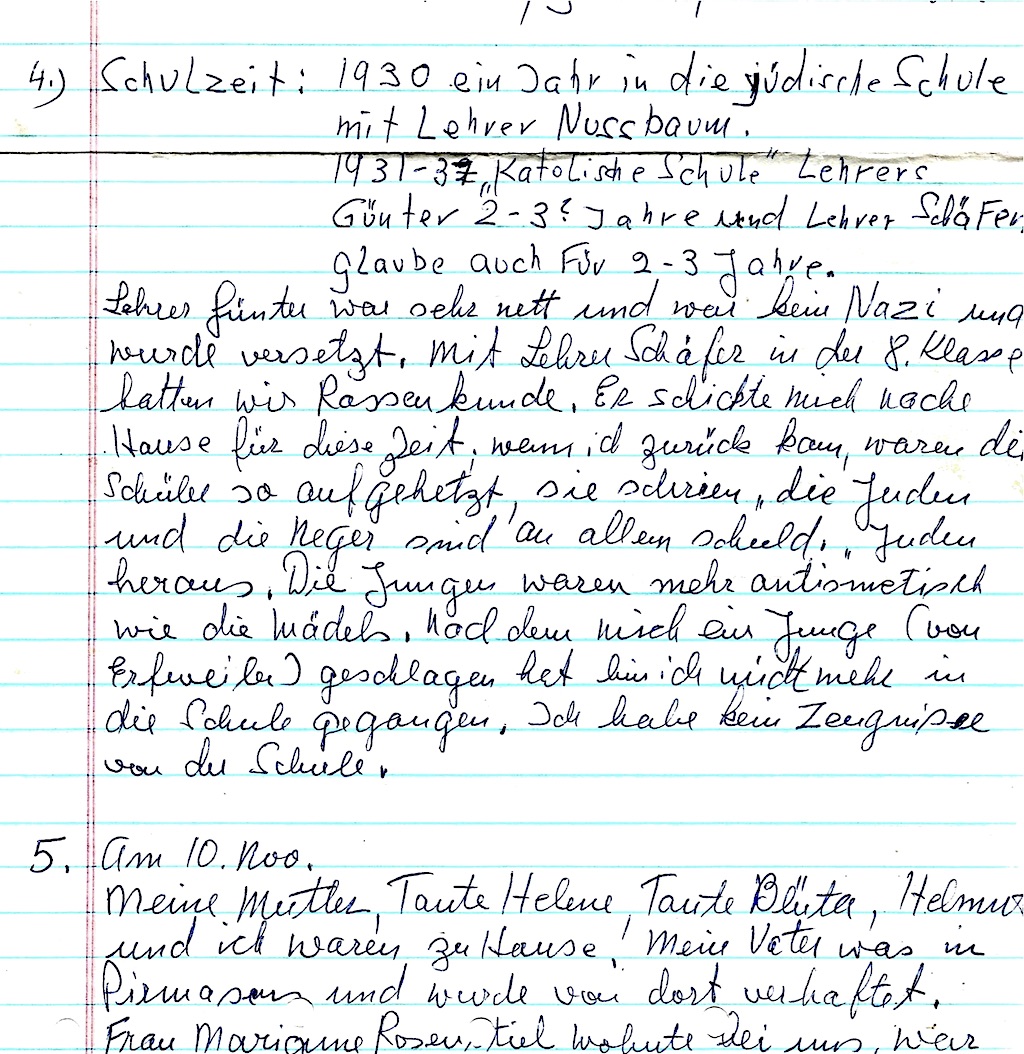 4.) Schulzeit: 1930 ein Jahr in die jüdische Schule
mit Lehrer Nussbaum.
1931-37 „Katolische Schule" Lehrers
Günter 2-3? Jahre und Lehrer Schäfer,
glaube auch Für 2-3 Jahre.
Lehrer Günter war sehr nett und war kein Nazi und
wurde versetzt. Mit Lehrer Schäfer in der 8. Klasse
hatten wir Rassenkunde. Er schickte mich nache
Hause für diese Zeit, wenn ich zurück kam, waren die
Schüler so aufgehetzt, sie schrien „die Juden
und die Neger sind an allem schuld. „ Juden
heraus. Die Jungen waren mehr antismetisch
wie die Mädels. Nach dem mich ein Junge (von
Erfweiler) geschlagen hat bin ich nicht mehr in
die Schule gegangen. Ich habe kein Zeugnisse
von der Schule.
5. Am 10. Nov.
Meine Mutter, Tante Helene, Tante Blüta, Helmut
und ich waren zu Hause! Mein Vater was in
Pirmasens und wurde von dort verhaftet.
Frau Marianne Rosenstiel wohnte bei uns, war